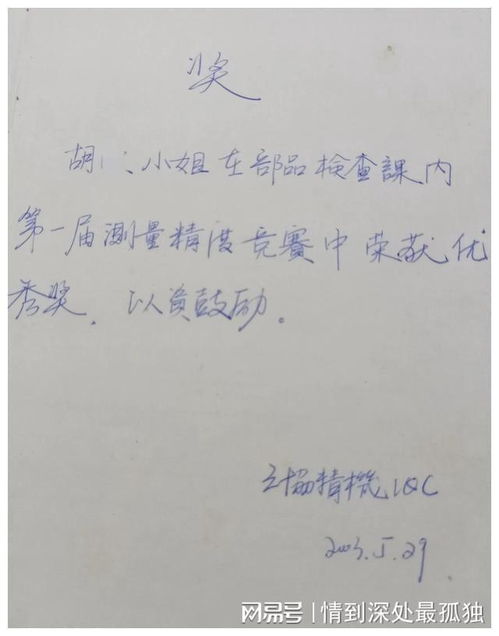 奖
胡 小姐在部品検查課内
第一届测量精度竞賽中荣获优
秀奖，以资鼓励。
精機 IQC
2003.5.29
网易号 | 情到深处最孤独